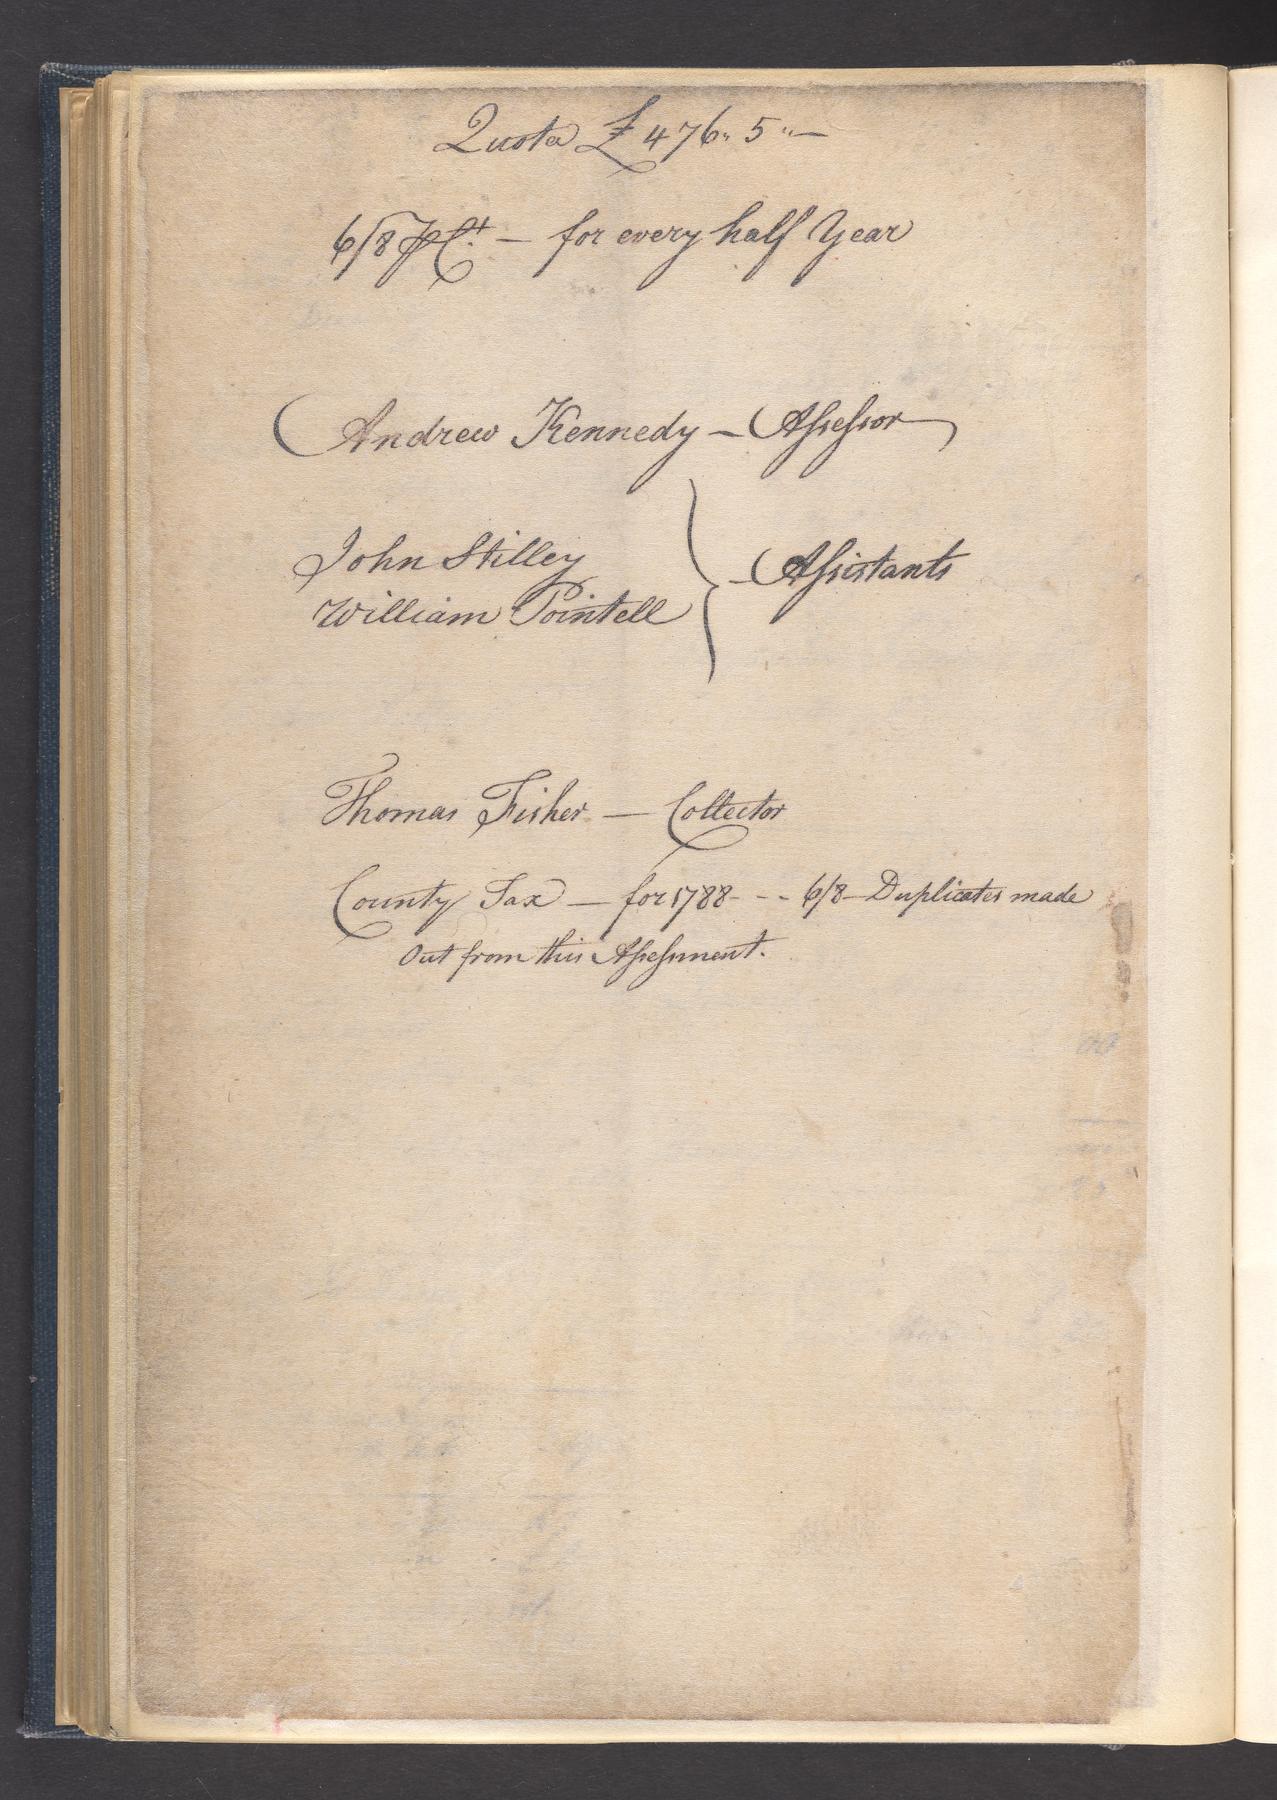 Quota £ 476„ 5„—
6/8 ⅌ Ct. — for every half Year
Andrew Kennedy — Assessor
John Stilley
William Pointell } — Assistants
Thomas Fisher — Collector
County Tax — for 1788 - - - 6/8 — Duplicates made
Out from this Assessment.